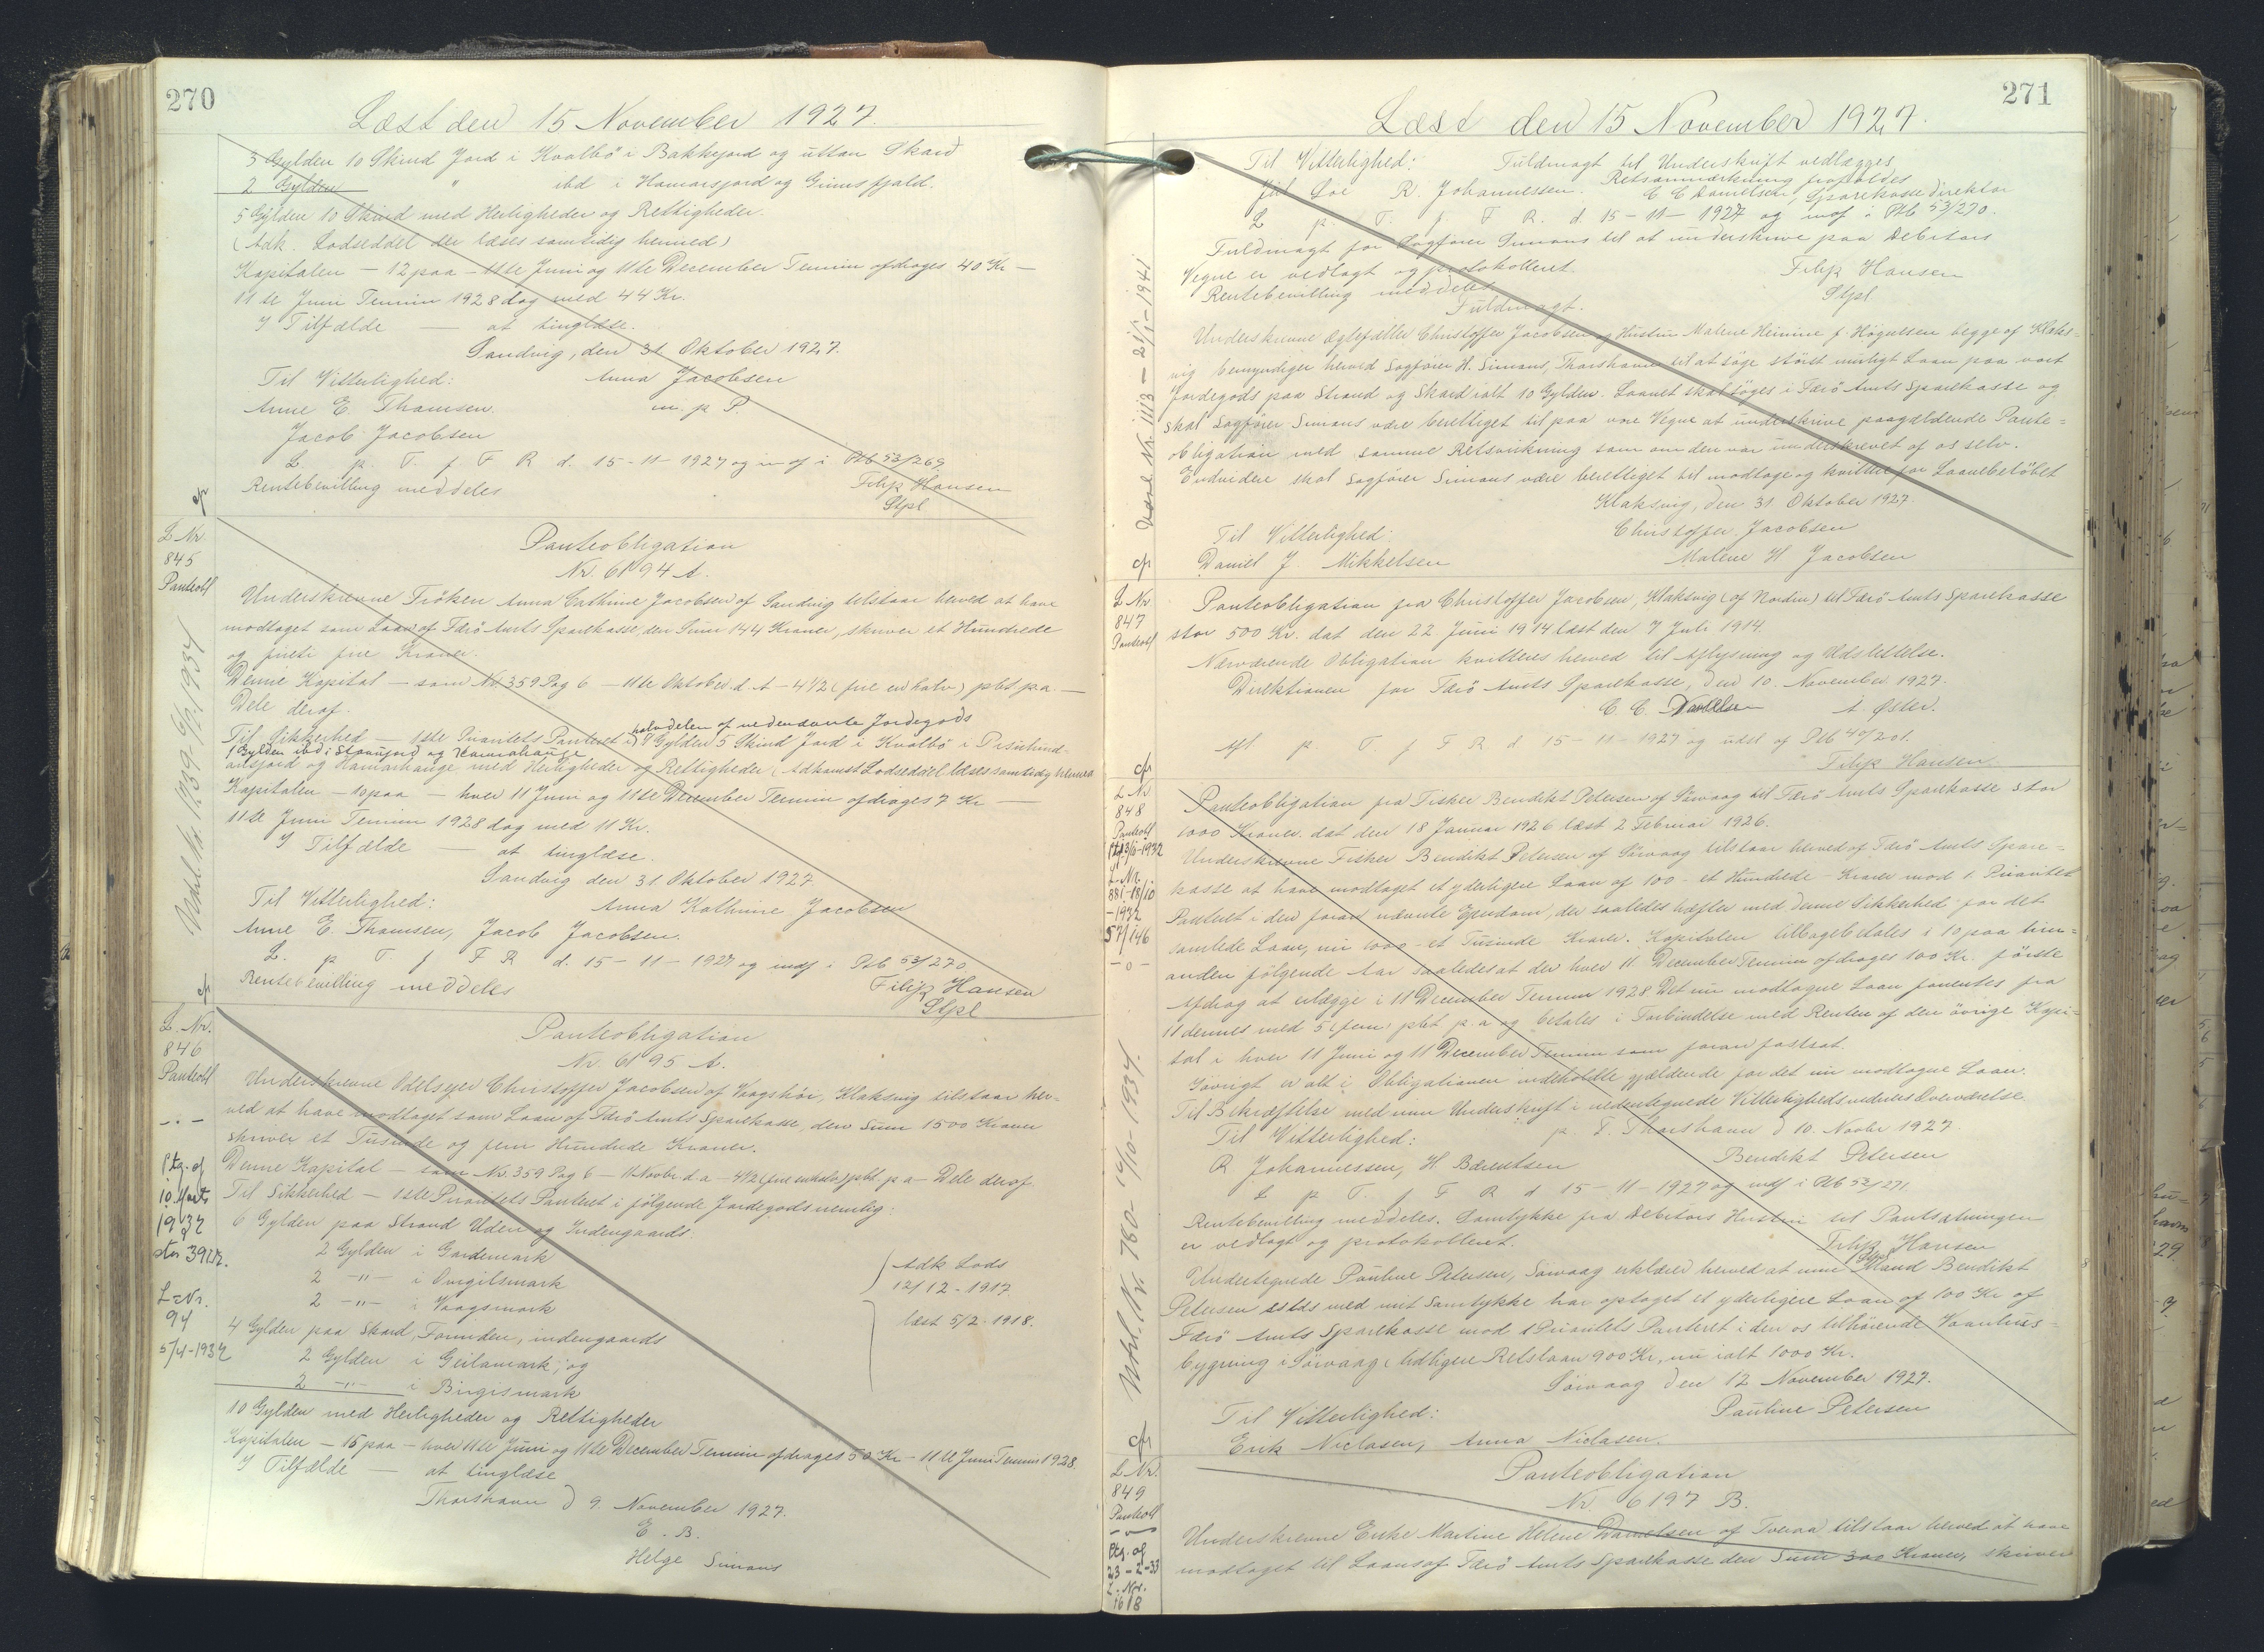 270
Læst den 15 November 1927.
3 Gylden 10 Skind Jord i Kvalbö i Bakkejord og uttan Skard
2 Gylden " ibd i Hamarsjord og Grimsfjald.
5 Gylden 10 Skind med Herligheder og Rettigheder.
(Adk. Lodseddel der læses samtidig hermed)
Kapitalen — 12 paa — 11te Juni og 11te December Termin afdrages 40 Kr —
11te Juni Termin 1928 dog med 44 Kr.
I Tilfælde — at tinglæse.
Sandvig, den 31. Oktober 1927.
Til Vitterlighed: Anna Jacobsen
Anne E. Thomsen. m. p. P.
Jacob Jacobsen
L. p. T. f. F R d. 15-11-1927 og indf i Ptb 53/269
Rentebevilling meddeles Filip Hansen
cfr Stpl
L Nr.
845
Panteobl
Panteobligation
Nr. 6194 A.
Underskrevne Fröken Anna Cathrine Jacobsen af Sandvig tilstaar herved at have
modtaget som Laan af Færö Amts Sparekasse, den Sum 144 Kroner, skriver et Hundrede
og firti fire Kroner.
Denne Kapital — som Nr. 359 Pag 6 — 11te Oktober d. A — 4 1/2 (fire en halv) pCt. p.a. —
Dele deraf.
halvdelen af nedennævnte Jordegods
Til Sikkerhed — 1ste Prioritets Panteret i 4 Gylden 5 Skind Jord i Kvalbö i
1 Gylden ibd i og Hamrahauge
og Hamarhauge med Herligheder og Rettigheder (Adkomst Lodseddel læses samtidig hermed
Kapitalen — 10 paa — hver 11 Juni og 11te December Termin afdrages 7 Kr —
11te Juni Termin 1928 dog med 11 Kr.
I Tilfælde — at tinglæse.
Sandvig den 31. Oktober 1927.
Til Vitterlighed: Anna Kathrine Jacobsen
Anne E. Thomsen, Jacob Jacobsen.
L. p T. f F R d. 15-11-1927 og indf i Ptb 53/270
Rentebevilling meddeles Filip Hansen
cfr Stpl
L. Nr.
846
Panteobl
Ptg. af
10. Marts
1932
L=Nr.
94
5/4-1932
Panteobligation
Nr 6195 A.
Underskrevne Odelsejer Christoffer Jacobsen af Vaagshör, Klaksvig tilstaar her-
ved at have modtaget som Laan af Færö Amts Sparekasse, den Sum 1500 Kroner
skriver et Tusinde og fem Hundrede Kroner.
Denne Kapital — som Nr. 359 Pag 6 — 11. Novbr d. a — 4 1/2 (fire en halv) pCt. p a — Dele deraf.
Til Sikkerhed — 1ste Prioritets Panteret i følgende Jordegods nemlig:
6 Gylden paa Strand Uden og Indengaards.
2 Gylden i Gardemark
2 —"— i
2 —"— i Vaagsmark
Adk Lods
12/12-1917
læst 5/2-1918.
4 Gylden paa Skard, indengaards
2 Gylden i Geilamark; og
2 —"— i Birgismark
10 Gylden med Herligheder og Rettigheder
Kapitalen — 15 paa — hver 11te Juni og 11te December Termin afdrages 50 Kr — 11te Juni Termin 1928.
I Tilfælde — at tinglæse
Thorshavn d 9. November 1927.
E. B.
Helge Simons
271
Læst den 15 November 1927.
Til Vitterlighed: Fuldmagt til Underskrift vedlægges
R. Johannessen. Retsanmærkning frafaldes
C C Danielsen, Sparekassedirektør
L p. T. f. F R. d 15-11-1927 og indf i Ptb 53/270.
Fuldmagt for Sagfører Simons til at underskrive paa Debitors
Vegne er vedlagt og protokolleret. Filip Hansen
Rentebevilling meddeles Stpl
Fuldmagt.
Underskrevne Ægtefæller Christoffer Jacobsen og Hustru Malene Heinine f. Högnesen begge af Klaks-
vig bemyndiger herved Sagfører H. Simons, Thorshavn til at söge störst muligt Laan paa vort
Jordegods paa Strand og Skard ialt 10 Gylden. Laanet skal söges i Færö Amts Sparekasse og
skal Sagfører Simons være berettiget til paa vore Vegne at underskrive paagældende Pante-
obligation med samme Retsvirkning som om den var underskrevet af os selv.
Endvidere skal Sagfører Simons være berettiget til modtage og kvittere for Laanebelöbet
Klaksvig, den 31 Oktober 1927.
Til Vitterlighed: Christoffer Jacobsen
cfr Daniel J. Mikkelsen Malene H Jacobsen
L Nr
847
Panteobl
Panteobligation fra Christoffer Jacobsen, Klaksvig (af Nordin) til Færö Amts Sparekasse
stor 500 Kr. dat den 22 Juni 1914 læst den 7 Juli 1914.
Nærværende Obligation kvitteres herved til Aflysning og Udslettelse.
Direktionen for Færö Amts Sparekasse, den 10. November 1927.
C. C. Danielsen A. Øster.
Afl p. T. f F R. d 15-11-1927 og udsl af Ptb 49/201.
cfr Filip Hansen
L Nr
848
Panteobl
L. Nr.
881-18/10
-1932
57/146
-o-
Panteobligation fra Fisker Bendikt Petersen af Sörvaag til Færö Amts Sparekasse stor
1000 Kroner dat den 18 Januar 1926 læst 2 Februar 1926.
Underskrevne Fisker Bendikt Petersen af Sörvaag tilstaar herved af Færö Amts Spare-
kasse at have modtaget et yderligere Laan af 100 - et Hundrede - Kroner mod 1. Prioritet
Panteret i den foran nævnte Ejendom, der saaledes hæfter med denne Sikkerhed for det
samlede Laan, nu 1000 - et Tusinde Kroner. Kapitalen tilbagebetales i 10 paa hin-
anden fölgende Aar saaledes at der hver 11. December Termin afdrages 100 Kr. förste
Afdrag at erlægge i 11 December Termin 1928 Det nu modtagne Laan forrentes fra
11 dennes med 5 (fem) pCt p. a og betales i Forbindelse med Renten af den övrige Kapi-
tal i hver 11 Juni og 11 December Termin som foran fastsat.
Iövrigt er alt i Obligationen indeholdte gjældende for det nu modtagne Laan.
Til Bekræftelse med min Underskrift i nedentegnede Vitterlighedsvidners Overværelse
Til Vitterlighed: p. T. Thorshavn d 10. Novbr 1927.
R Johannessen, H. Bærentsen Bendikt Petersen
L p T. f F R d 15-11-1927 og indf i Ptb 53/271.
Rentebevilling meddeles. Samtykke fra Debitors Hustru til Pantsætningen
er vedlagt og protokolleret. Filip Hansen
Stpl
Undertegnede Pauline Petersen, Sörvaag erklærer herved at min Mand Bendikt
Petersen med mit Samtykke har optaget et yderligere Laan af 100 Kr af
Færö Amts Sparekasse mod 1 Prioritets Panteret i den os tilhörende Vaanhus-
bygning i Sörvaag (tidligere Restlaan 900 Kr, nu ialt 1000 Kr.
Sörvaag den 12 November 1927.
Til Vitterlighed: Pauline Petersen
cfr Erik Niclasen, Anna Niclasen.
L Nr.
849
Panteobl
Ptg. af
23-2-33
L. Nr.
1618
Panteobligation
Nr. 6197 B.
Underskrevne Enke Martine Helene Danielsen af Tveraa tilstaar herved at have
modtaget til Laans af Færö Amts Sparekasse den Sum 300 Kroner, skriver